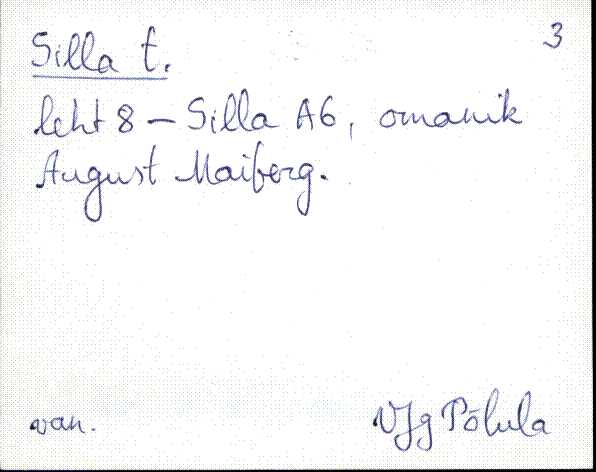 3
Silla t.
leht 8 – Silla A6, omanik
August Maiberg.
van. VJg Põlula